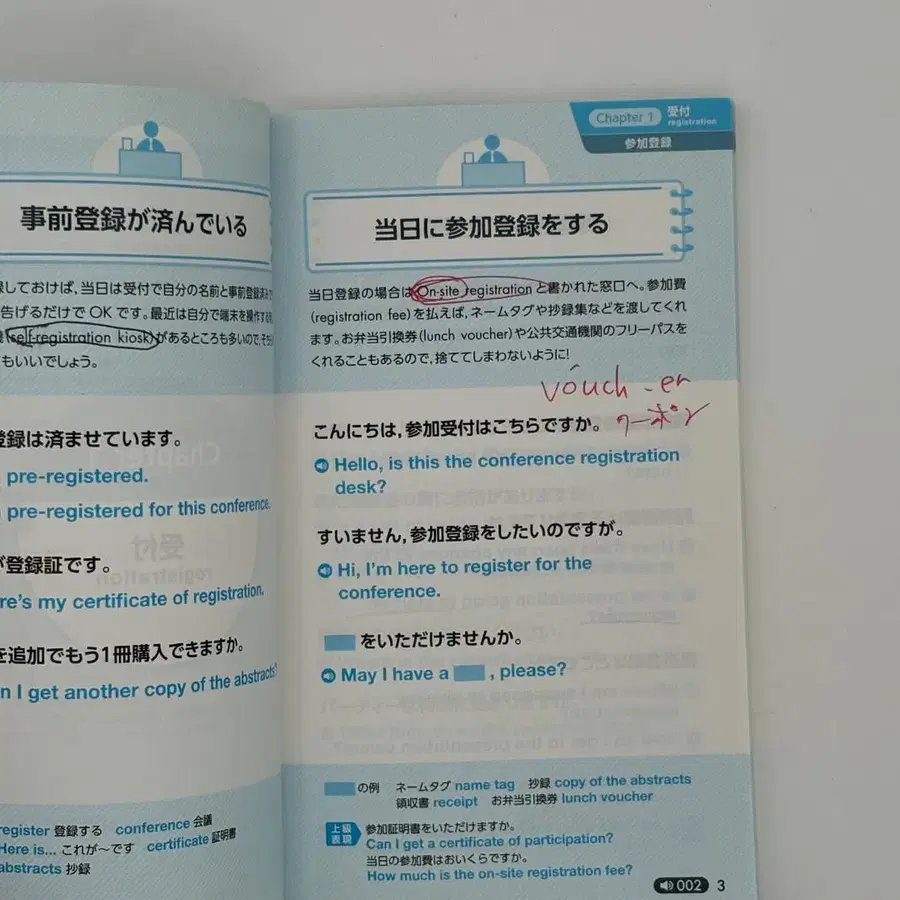 事前登録が済んでいる
しておけば，当日は受付で自分の名前と事前登録済み
告げるだけでOKです。最近は自分で端末を操作する
(self-registration kiosk)があるところも多いので，そち
もいいでしょう。
登録は済ませています。
pre-registered.
pre-registered for this conference.
が登録証です。
re's my certificate of registration.
を追加でもう1冊購入できますか。
n I get another copy of the abstracts?
register 登録する conference 会議
Here is... これが〜です certificate 証明書
abstracts 抄録
Chapter 1 受付
registration
参加登録
当日に参加登録をする
当日登録の場合はOn-site registrationと書かれた窓口へ。参加費
(registration fee)を払えば，ネームタグや抄録集などを渡してくれ
ます。お弁当引換券(lunch voucher)や公共交通機関のフリーパスを
くれることもあるので，捨ててしまわないように！
vóuch-er
クーポン
こんにちは，参加受付はこちらですか。
Hello, is this the conference registration
desk?
すいません，参加登録をしたいのですが。
Hi, I'm here to register for the
conference.
をいただけませんか。
May I have a , please?
の例 ネームタグ name tag 抄録 copy of the abstracts
領収書 receipt お弁当引換券 lunch voucher
上級
表現
参加証明書をいただけますか。
Can I get a certificate of participation?
当日の参加費はおいくらですか。
How much is the on-site registration fee?
002 3